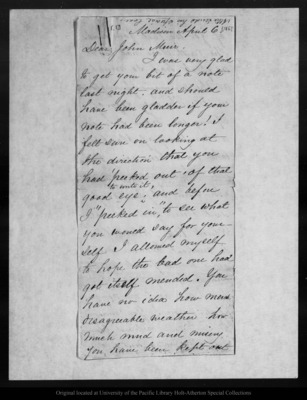 Madison April 6
Dear John Muir
I was very glad
to get your bit of a note
last night, and should
have been gladder if your
note had been longer! I
felt sure on looking at
the direction that you
had "peeked out" of that
to write it,
good eye, and before
I "peeked" "in," to see what
you would say for your-
self I allowed myself
to hope the bad one had
got itself mended. You
have no idea how much
disagreeable weather how
much mud and misery
you have been kept out
Original located at University of the Pacific Library Holt-Atherton Special Collections